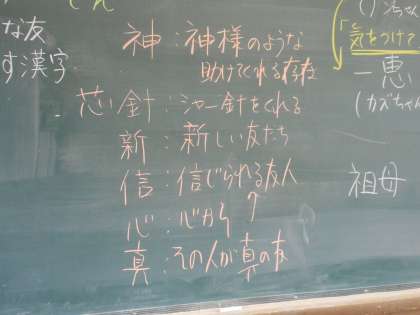 な友
す漢字
神：神様のような
助けてくれる存在
芯 針：シャー針をくれる
新：新しい友だち
信：信じられる友人
心：心から↑
真：その人が真の友
「気をつけて
一恵
祖母